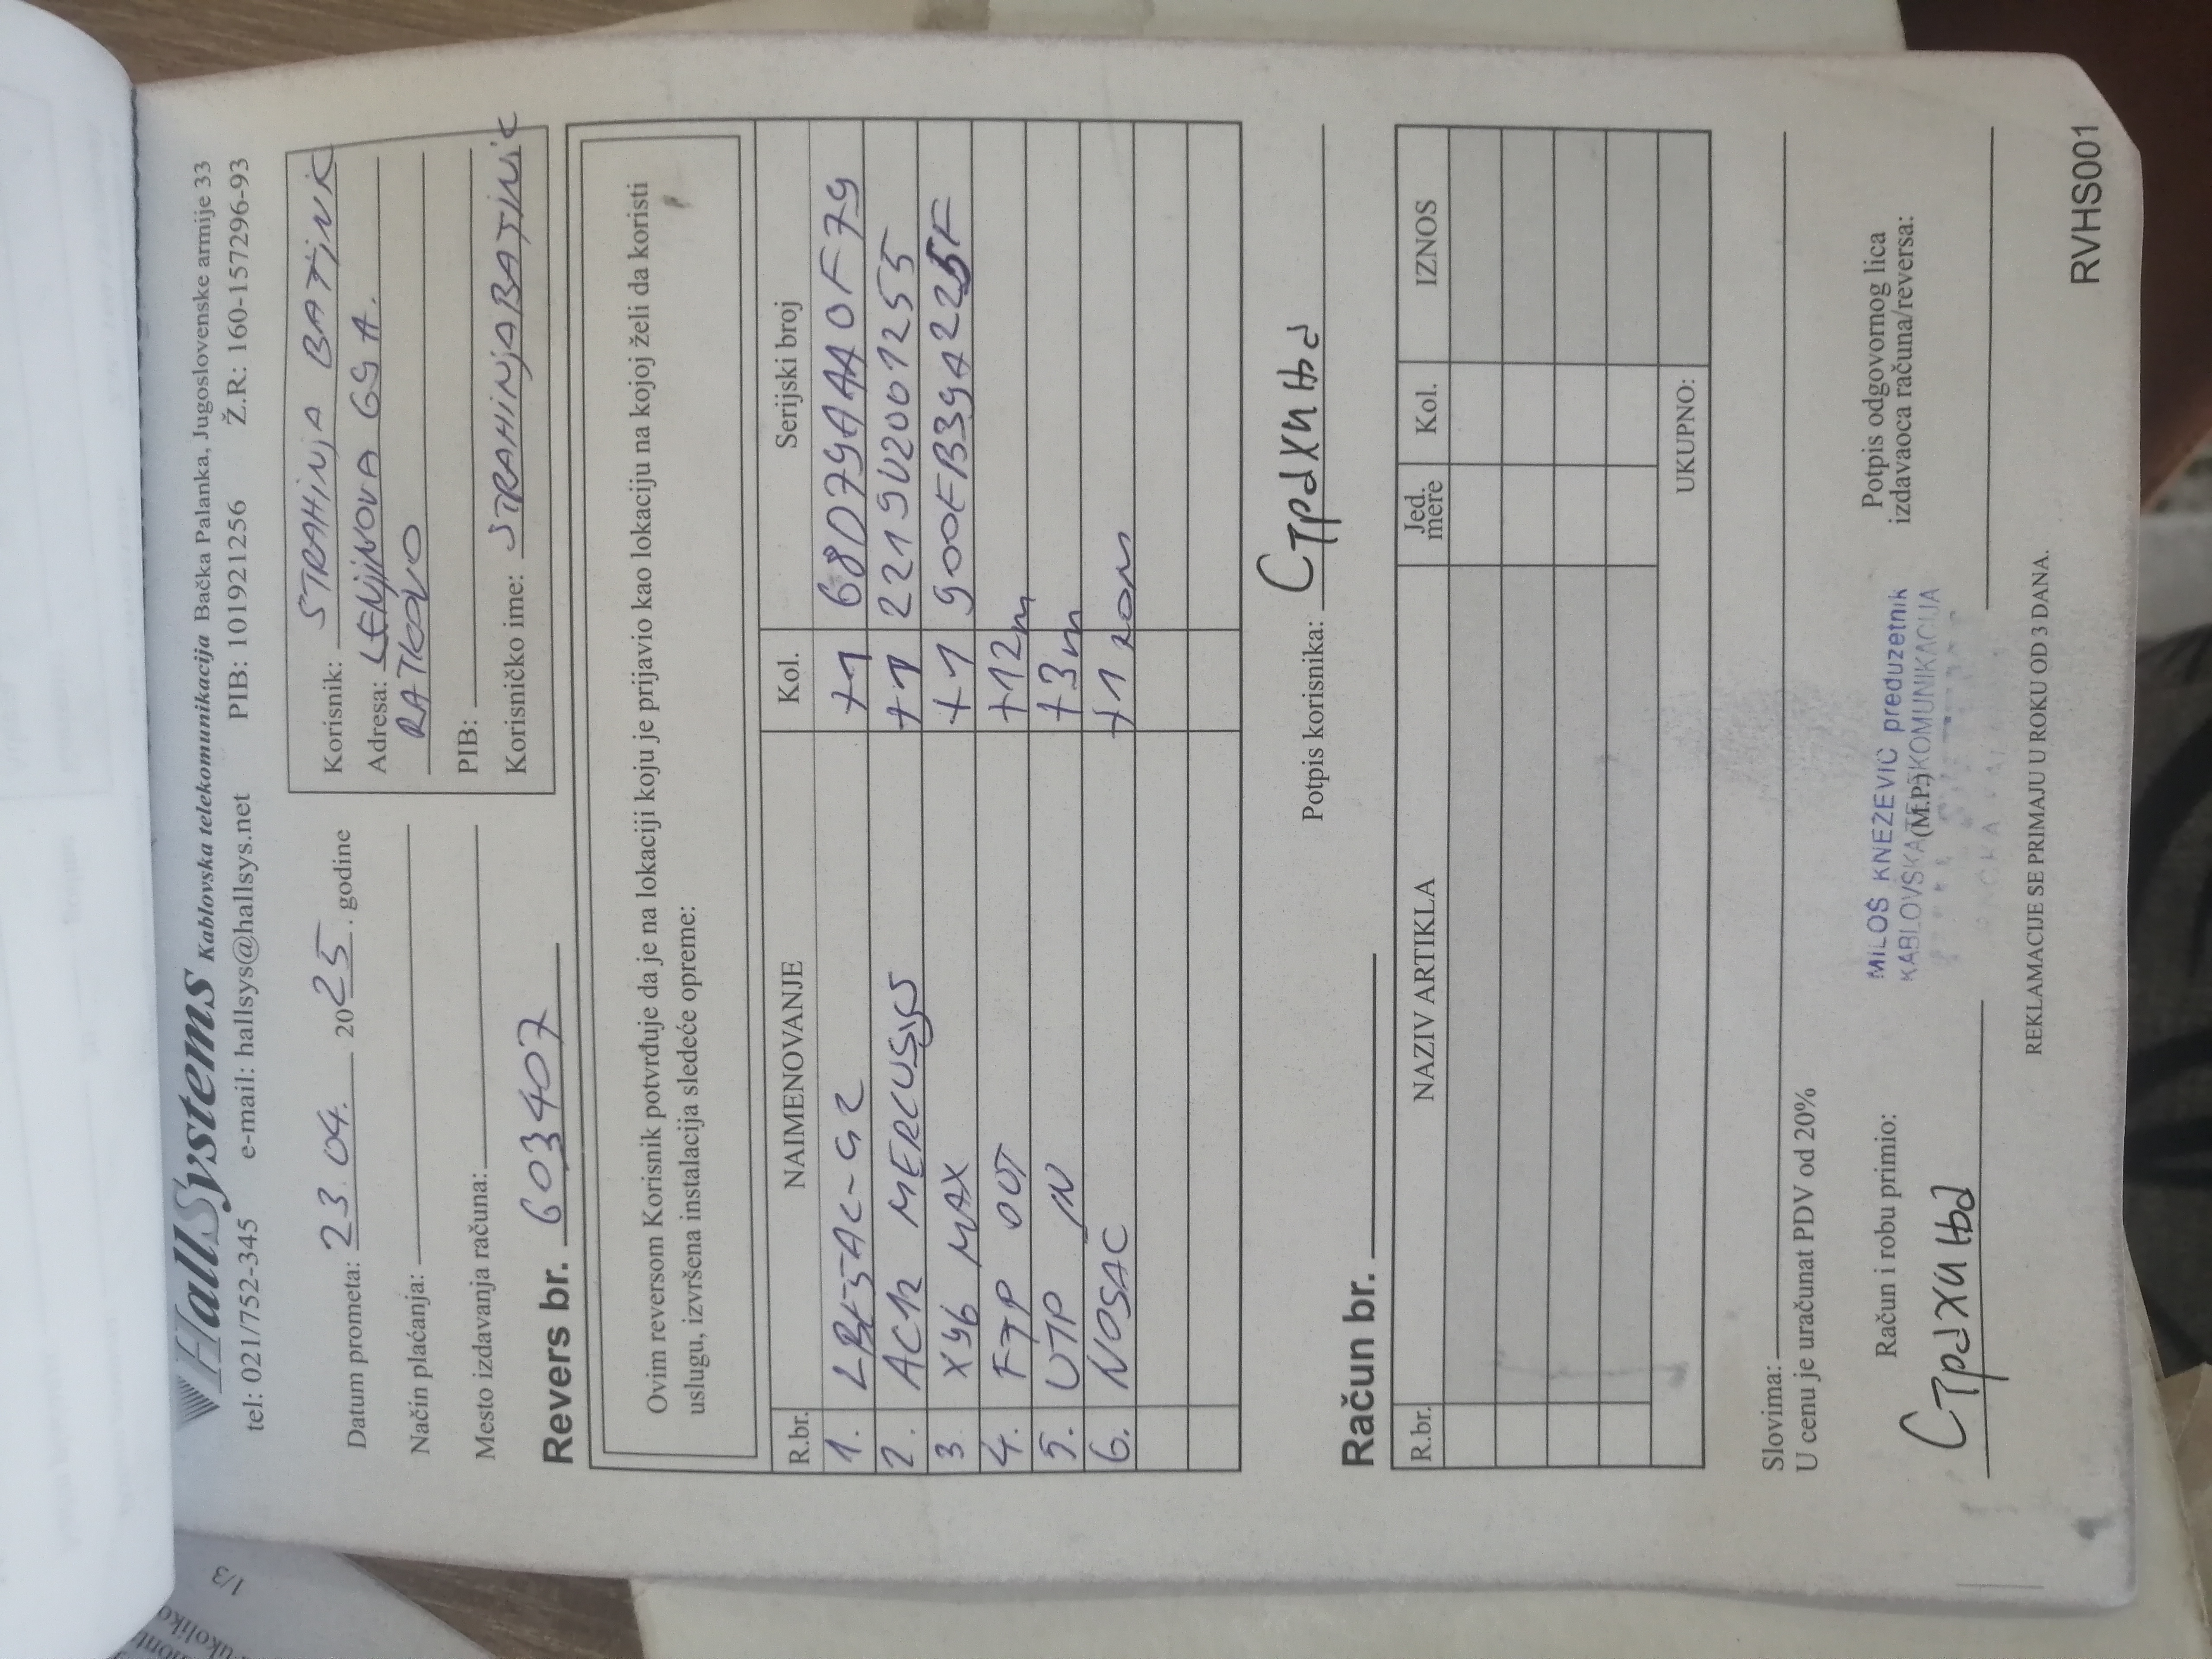 HallSystems Kablovska telekomunikacija Bačka Palanka, Jugoslovenske armije 33
tel: 021/752-345 e-mail: hallsys@hallsys.net PIB: 101921256 Ž.R: 160-157296-93
Datum prometa: 23.04. 2025. godine
Način plaćanja:
Mesto izdavanja računa:
Korisnik: STRAHINJA BATINIĆ
Adresa: LENJINOVA 69A.
RATKOVO
PIB:
Korisničko ime: STRAHINJABATINIC
Revers br. 603407
Ovim reversom Korisnik potvrđuje da je na lokaciji koju je prijavio kao lokaciju na kojoj želi da koristi
uslugu, izvršena instalacija sledeće opreme:
R.br. NAIMENOVANJE Kol. Serijski broj
1. LBE-5AC-G2 +1 68D79AAA0F79
2. AC12 MERCUSYS +1 2219U2001255
3 X96 MAX +1 900EB39A225F
4. FTP OUT +12m
5. UTP IN +3m
6. NOSAC +1 kom
Potpis korisnika: Страхиња
Račun br.
R.br. NAZIV ARTIKLA Jed. mere Kol. IZNOS
UKUPNO:
Slovima:
U cenu je uračunat PDV od 20%
Račun i robu primio:
Страхиња
MILOŠ KNEŽEVIĆ preduzetnik
KABLOVSKA TELEKOMUNIKACIJA
(M.P.)
Potpis odgovornog lica
izdavaoca računa/reversa:
REKLAMACIJE SE PRIMAJU U ROKU OD 3 DANA.
RVHS001
1/3
ukoliko